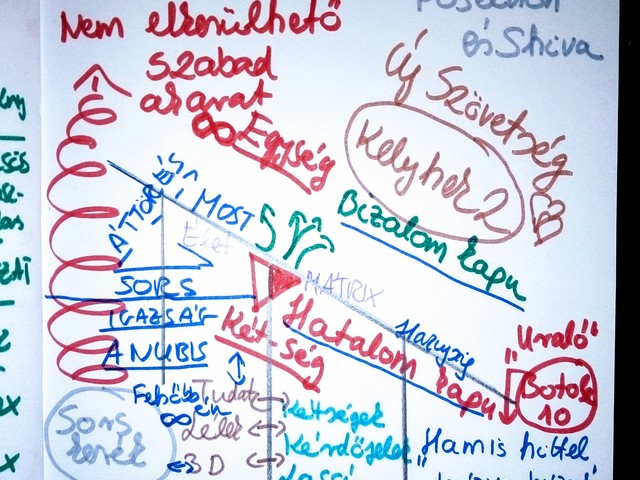 Nem elkerülhető
szabad
akarat
∞ Egység
és Shiva
Új Szövetség
Kelyhek 2
Bizalom kapu
ÁTTÖRÉS
MOST
Élet
MÁTRIX
SORS
IGAZSÁG
ANUBIS
Két-
ség
Hatalom kapu
Hazugság
„Uraló"
Botok
10
Felsőbb
én
∞
Tudat
Lélek
3D
Kétségek
Kérdőjelek
Hamis hittel
Sors
kerék